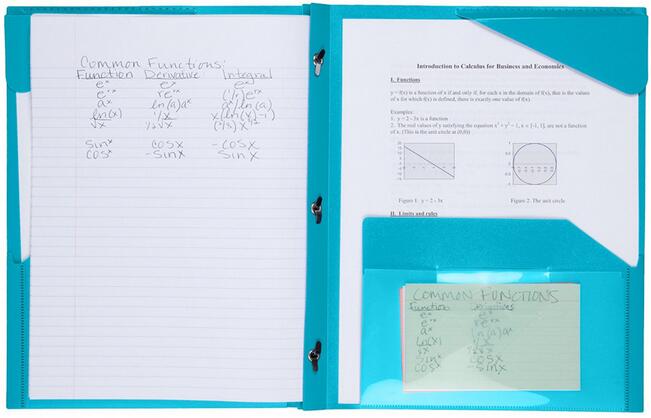 Common Functions:
Function Derivative Integral
eˣ eˣ eˣ
eʳˣ reʳˣ (1/r)eʳˣ
aˣ ln(a)aˣ aˣ ln(a)
ln(x) 1/x x(ln(x)-1)
√x 1/2√x
sinˣ cosx -cosx
cosˣ -sinx sinx
Introduction to Calculus for Business and Economics
I. Functions
y = f(x) is a function of x if and only if, for each x in the domain of f(x), that is the values
of x for which f(x) is defined, there is exactly one value of f(x).
Examples:
1. y = 2 - 3x is a function
2. The real values of y satisfying the equation x² + y² = 1, x ∈ [-1, 1], are not a function
of x. (This is the unit circle at (0,0))
Figure 1. y = 2 - 3x Figure 2. The unit circle
II. Limits and rules
COMMON FUNCTIONS
Function Derivatives
eˣ eˣ
eʳˣ reʳˣ
aˣ ln(a)aˣ
ln(x) 1/x
sinˣ cosx
cosˣ -sinx